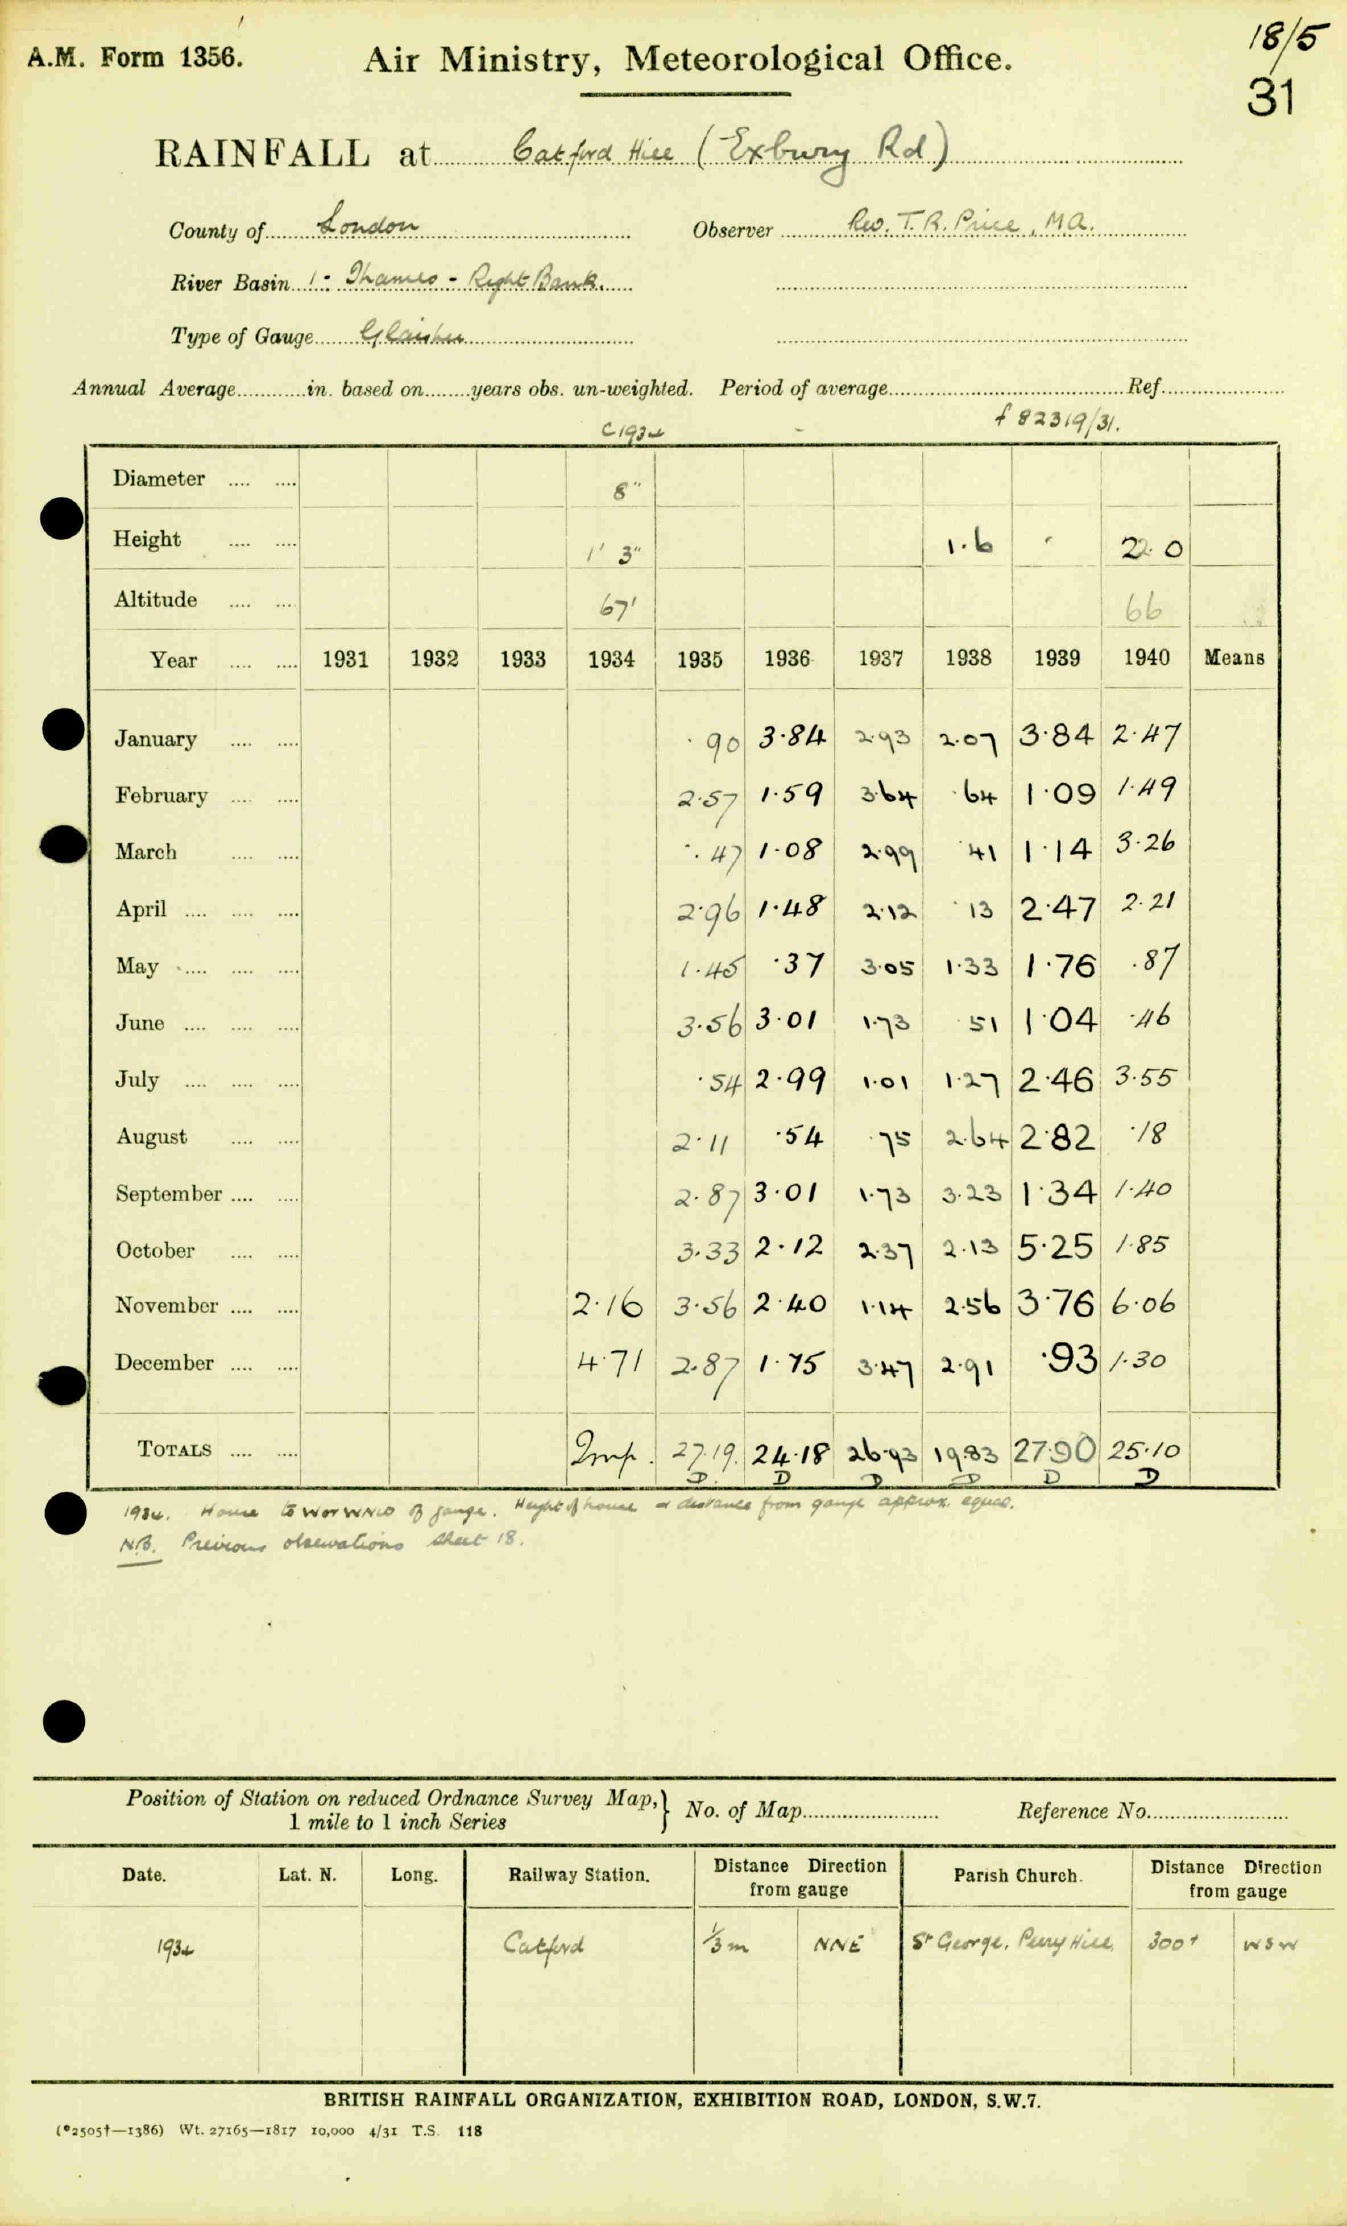 A.M. Form 1356.
Air Ministry, Meteorological Office.
18/5
31
RAINFALL at Catford Hill (Exbury Rd)
County of London Observer Rev. T. R. Price, M.A.
River Basin 1:- Thames - Right Bank.
Type of Gauge Glaisher
Annual Average in. based on years obs. un-weighted. Period of average Ref.
C1934 f 82319/31.
Diameter 8"
Height 1' 3" 1.6 2.0
Altitude 67' 66
Year 1931 1932 1933 1934 1935 1936 1937 1938 1939 1940 Means
January .90 3.84 2.93 2.07 3.84 2.47
February 2.57 1.59 3.64 .64 1.09 1.49
March .47 1.08 2.99 .41 1.14 3.26
April 2.96 1.48 2.12 .13 2.47 2.21
May 1.45 .37 3.05 1.33 1.76 .87
June 3.56 3.01 1.73 .51 1.04 .46
July .54 2.99 1.01 1.27 2.46 3.55
August 2.11 .54 .75 2.64 2.82 .18
September 2.87 3.01 1.73 3.23 1.34 1.40
October 3.33 2.12 2.37 2.13 5.25 1.85
November 2.16 3.56 2.40 1.14 2.56 3.76 6.06
December 4.71 2.87 1.75 3.47 2.91 .93 1.30
TOTALS Imp. 27.19 24.18 26.93 19.83 27.90 25.10
D D D D D D
1934. House to W or WNW of gauge. Height of house & distance from gauge approx. equal.
N.B. Previous observations sheet 18.
Position of Station on reduced Ordnance Survey Map, } No. of Map Reference No.
1 mile to 1 inch Series
Date. Lat. N. Long. Railway Station. Distance Direction from gauge Parish Church. Distance Direction from gauge
1934 Catford 1/3 m NNE St George, Perry Hill WSW
BRITISH RAINFALL ORGANIZATION, EXHIBITION ROAD, LONDON, S.W.7.
(*2505†—1386) Wt. 27165—1817 10,000 4/31 T.S. 118